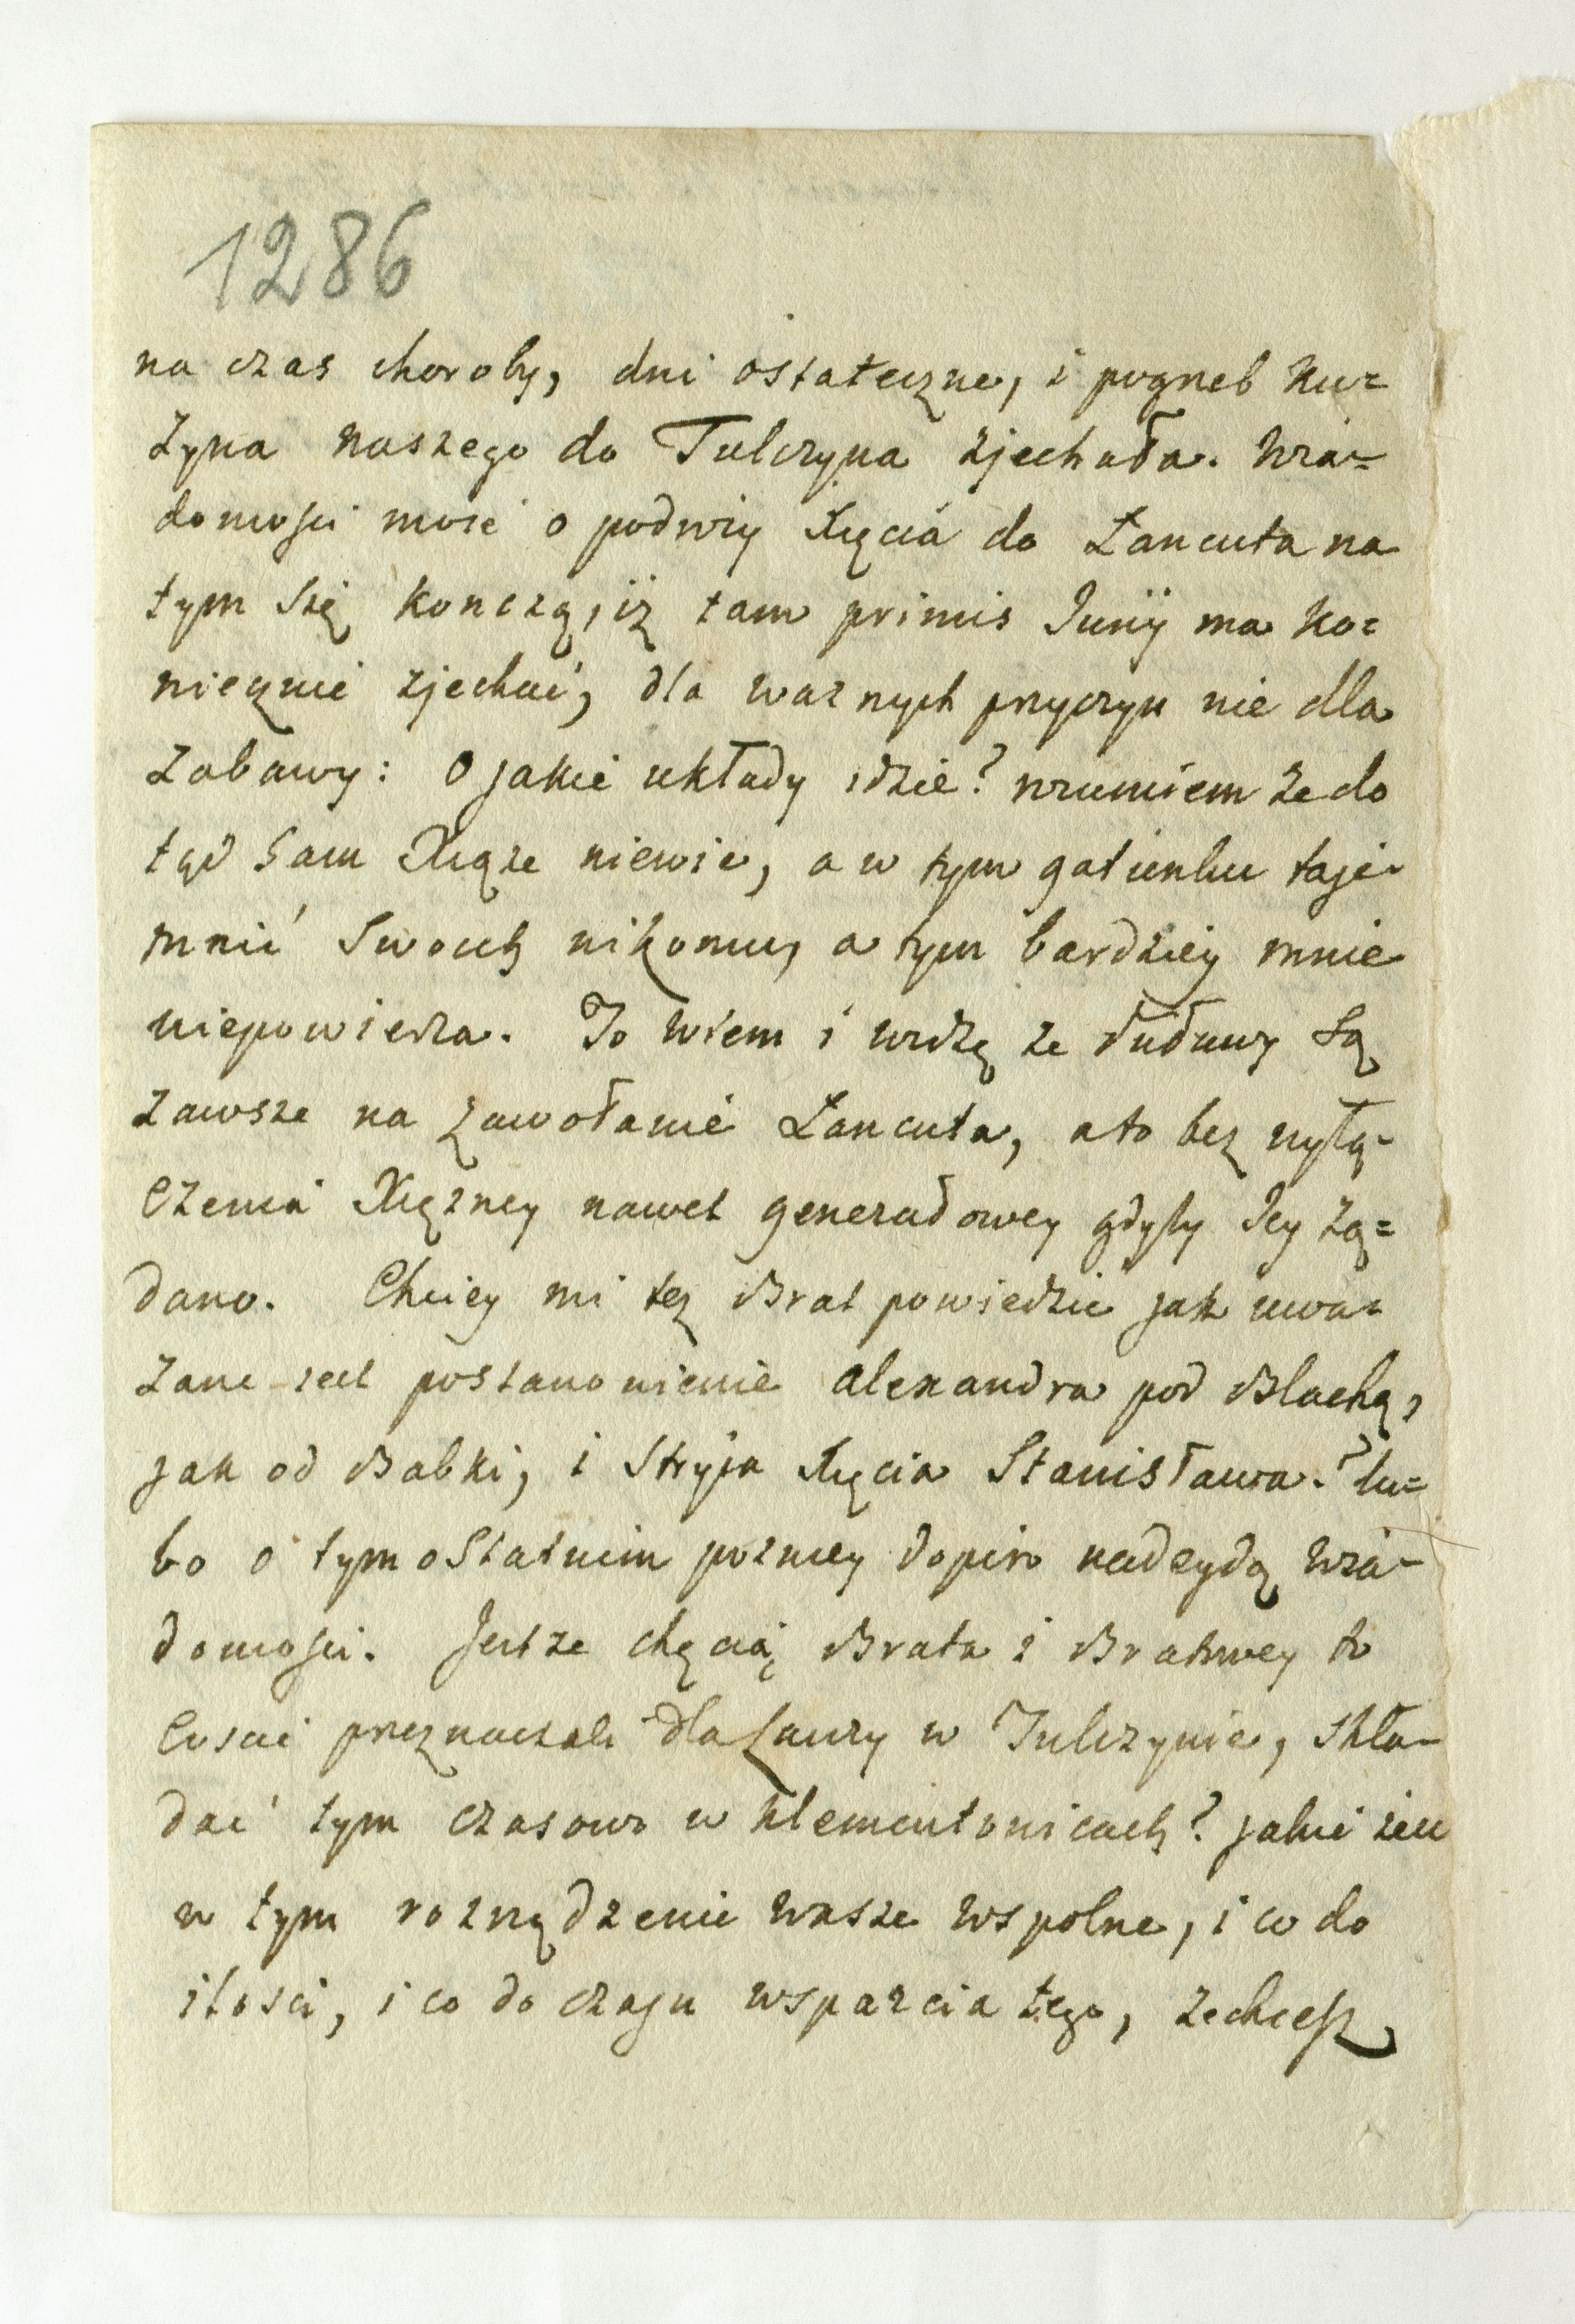 1286
na czas choroby, dni ostateczne, i pogrzeb Ku=
zyna naszego do Tulczyna zjechała. Wia=
domości moie o podróży Xięcia do Łancuta na
tym się kończą, iż tam primis Junij ma ko=
niecznie zjechać, dla ważnych przyczyn nie dla
zabawy: O jakie układy idzie? rozumiem że do
tąd sam Xiąże niewie, a w tym gatunku taje-
mnic swoich nikomu, a tym bardziey mnie
niepowierza. To wiem i widzę że są
zawsze na zawołanie Łancuta, a to bez wyłą-
czenia Xiężney nawet generałowey gdyby Jey żą=
dano. Chciey mi też Brat powiedzieć jak uwa-
żane jest postanowienie Alexandra pod Blachą,
jak od Babki, i Stryja Xięcia Stanisława? lu=
bo o tym ostatnim pozniey dopiro nadeydą wia-
domości. Jestże chęcią Brata i Bratowey to
coscie przeznaczali dla Laury w Tulczynie, skła-
dać tym czasowo w Klementowicach? jakie iest
w tym rozrządzenie wasze wspolne, i co do
ilości, i co do czasu wsparcia tego, zechcesz